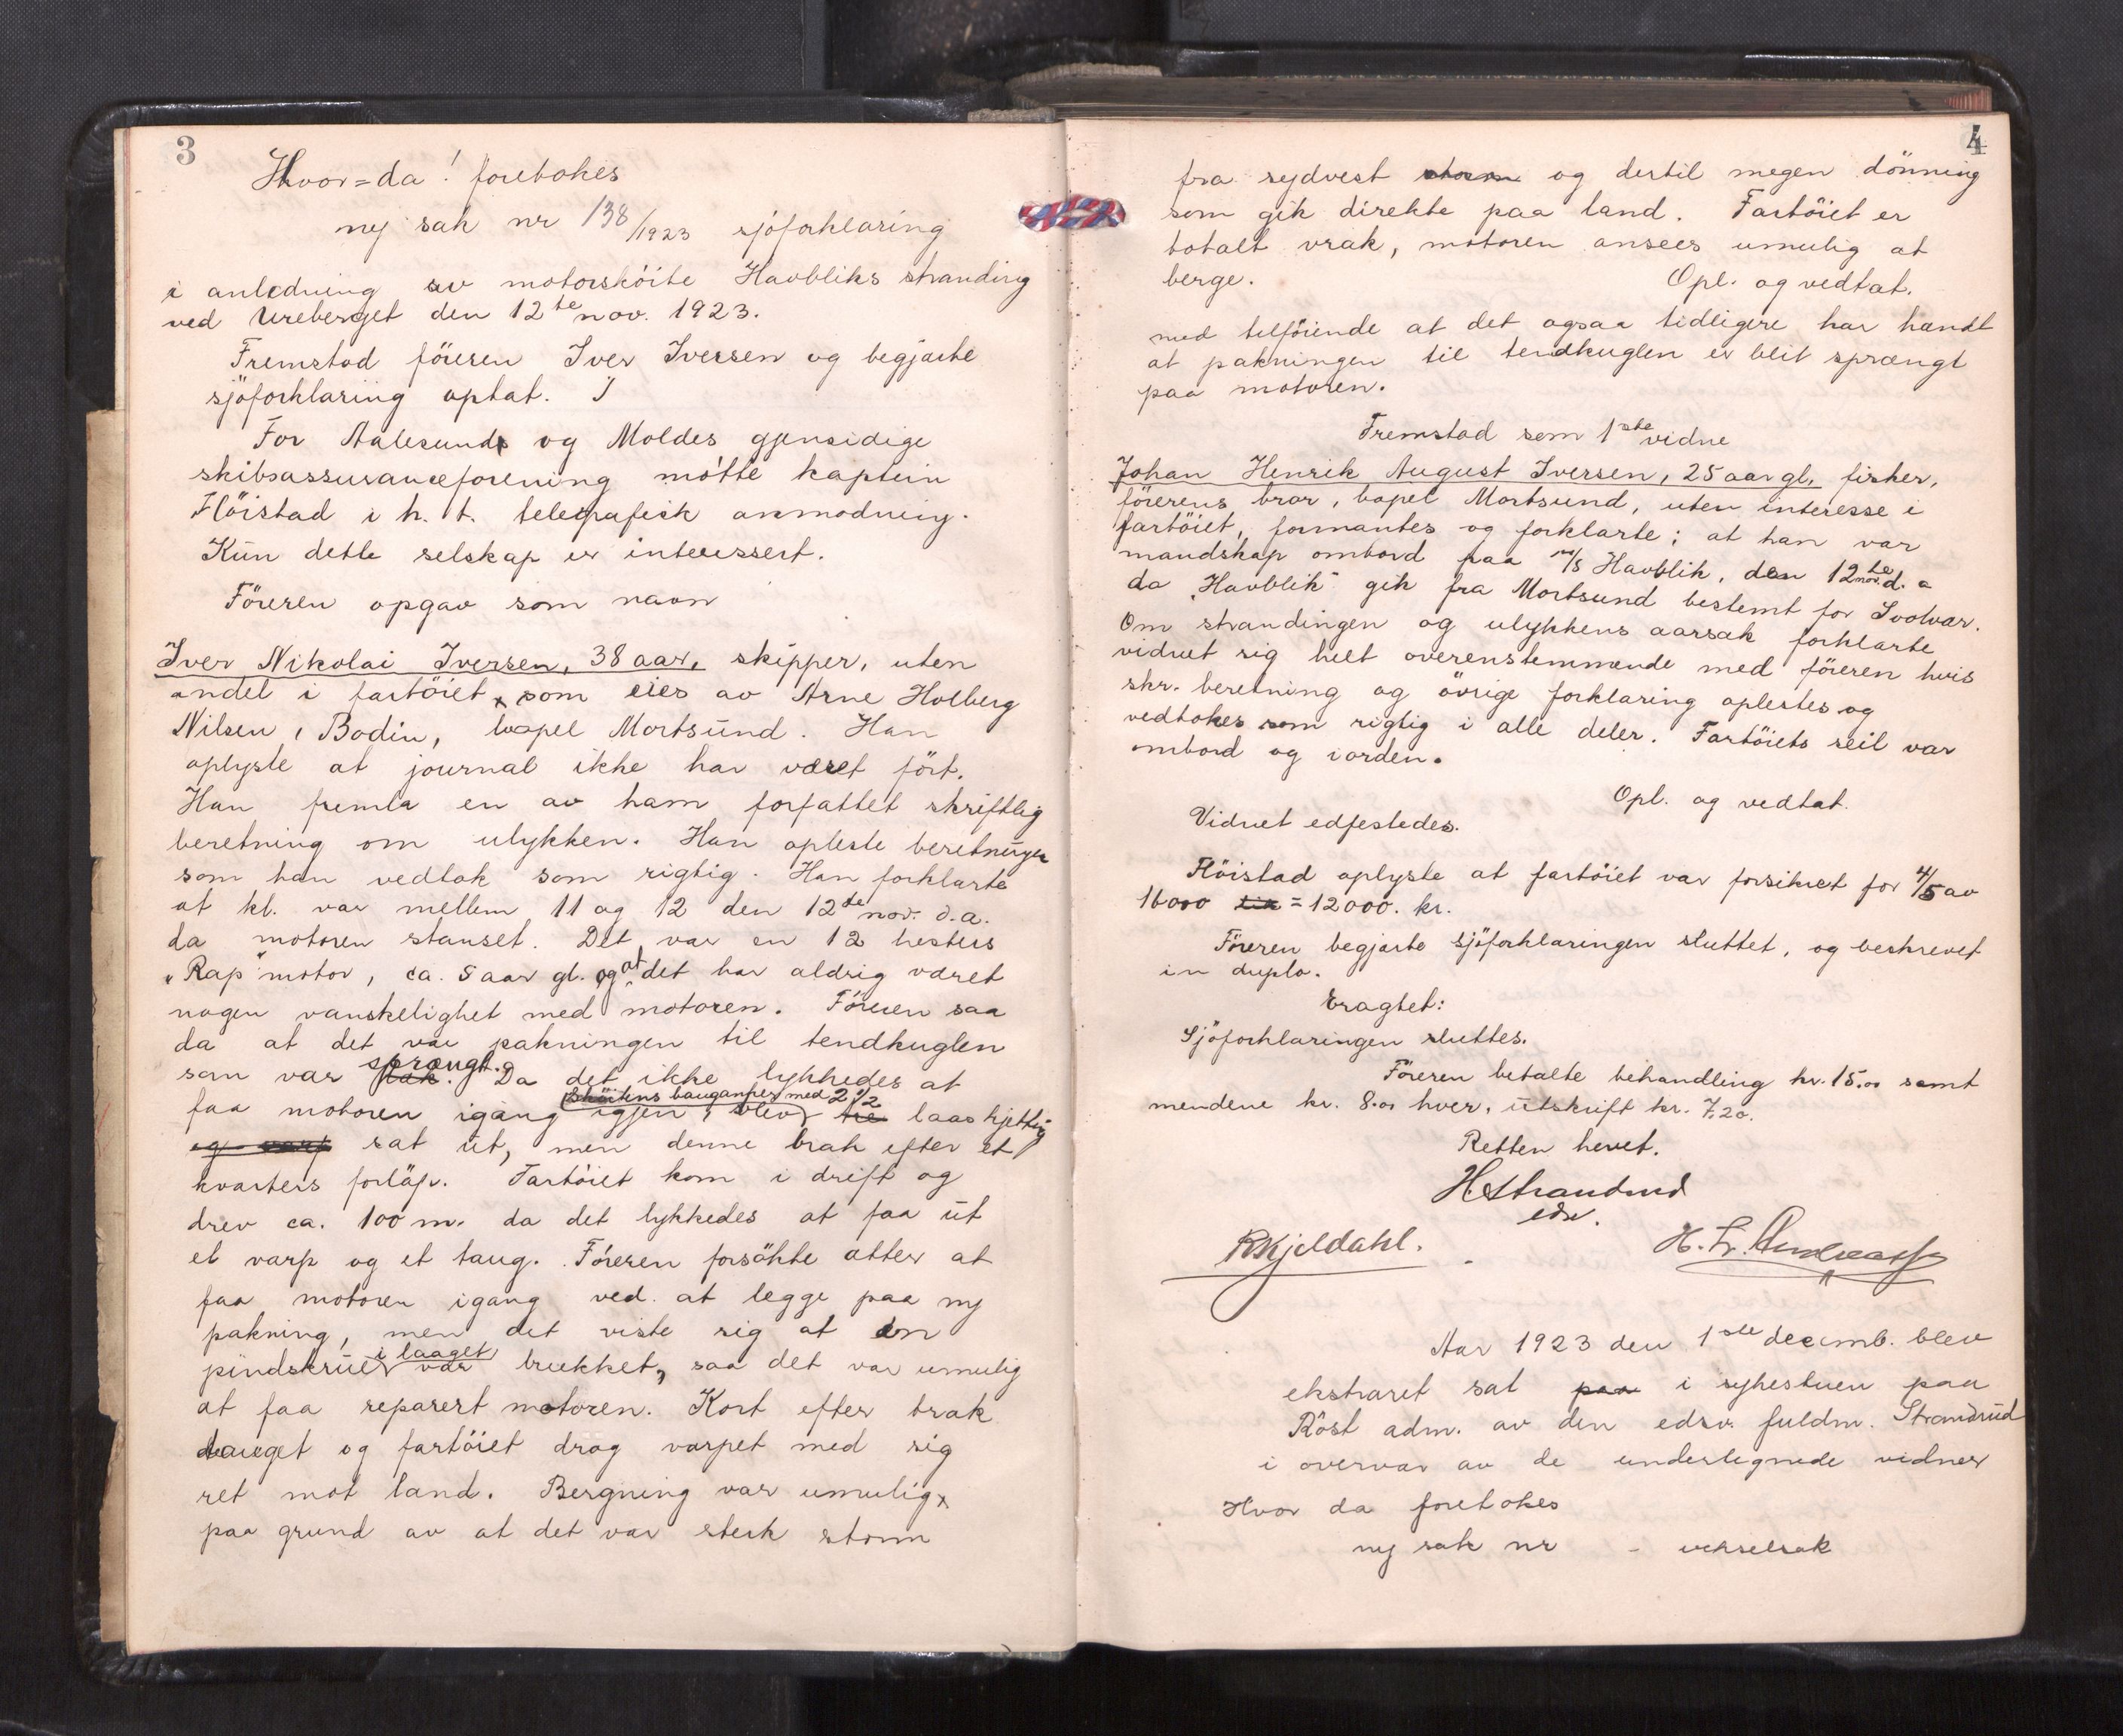 3
Hvor=da! foretokes
ny sak nr 138/1923 sjöforklaring
i anledning av motorsköite Havbliks stranding
ved Ureberget den 12te nov. 1923.
Fremstod föreren Iver Iversen og begjærte
sjöforklaring optat. I
For Aalesunds og Moldes gjensidige
skibsassuranceforening mötte kaptein
Flöistad i h. t. telegrafisk anmodning.
Kun dette selskap er interessert.
Föreren opgav som navn
Iver Nikolai Iversen, 38 aar, skipper, uten
andel i fartöiet, som eies av Arne Holberg
Nilsen, Bodin, bopel Mortsund. Han
oplyste at journal ikke har været fört.
Han fremla en av ham forfattet skriftlig
beretning om ulykken. Han opleste beretningen
som han vedtok som rigtig. Han forklarte
at kl. var mellem 11 og 12 den 12te nov. d.a.
da motoren stanset. Det var en 12 hesters
"Rap" motor, ca. 5 aar gl. og at det har aldrig været
nogen vanskelighet med motoren. Föreren saa
da at det var pakningen til tendkuglen
som var lak. sprængt. Da det ikke lykkedes at
faa motoren igang igjen, blev sköitens bauganker med 2 1/2 tre laas kjetting
og varp sat ut, men denne brak efter et
kvarters forløp. Fartöiet kom i drift og
drev ca. 100 m. da det lykkedes at faa ut
et varp og et taug. Föreren forsökte atter at
faa motoren igang ved at legge paa ny
pakning, men det viste sig at en
pindskrue i laaget var brukket, saa det var umulig
at faa reparert motoren. Kort efter brak
tauget og fartöiet drog varpet med sig
ret mot land. Bergning var umulig
paa grund av at det var sterk storm
4
fra sydvest storm og dertil megen dönning
som gik direkte paa land. Fartöiet er
totalt vrak, motoren ansees umulig at
berge.
Opl. og vedtat.
med tilföiende at det ogsaa tidligere har hændt
at pakningen til tendkuglen er blit sprængt
paa motoren.
Fremstod som 1ste vidne
Johan Henrik August Iversen, 25 aar gl. fisker,
förerens bror, bopel Mortsund, uten interesse i
fartöiet, formantes og forklarte; at han var
mandskap ombord paa m/s Havblik, den 12te nov. d. a
da "Havblik" gik fra Mortsund bestemt for Svolvær.
Om strandingen og ulykkens aarsak forklarte
vidnet sig helt overenstemmende med föreren hvis
skr. beretning og övrige forklaring oplestes og
vedtokes som rigtig i alle deler. Fartöiets seil var
ombord og iorden.
Opl. og vedtat.
Vidnet edfestedes.
Flöistad oplyste at fartöiet var forsikret for 4/5 av
16000 = 12000. kr.
Föreren begjærte sjöforklaringen sluttet, og beskrevet
in duplo.
Eragtet:
Sjöforklaringen sluttes.
Föreren betalte behandling kr. 15.00 samt
mendene kr. 8.00 hver, utskrift kr. 7.20.
Retten hevet.
H. Strandrud
edsv.
R Kjeldahl.
H. L. Andreassen
Aar 1923 den 1ste decemb. blev
ekstraret sat paa i sykestuen paa
Röst adm. av den edsv. fuldm. Strandrud
i overvær av de undertegnede vidner
Hvor da foretokes
ny sak nr - vekselsak